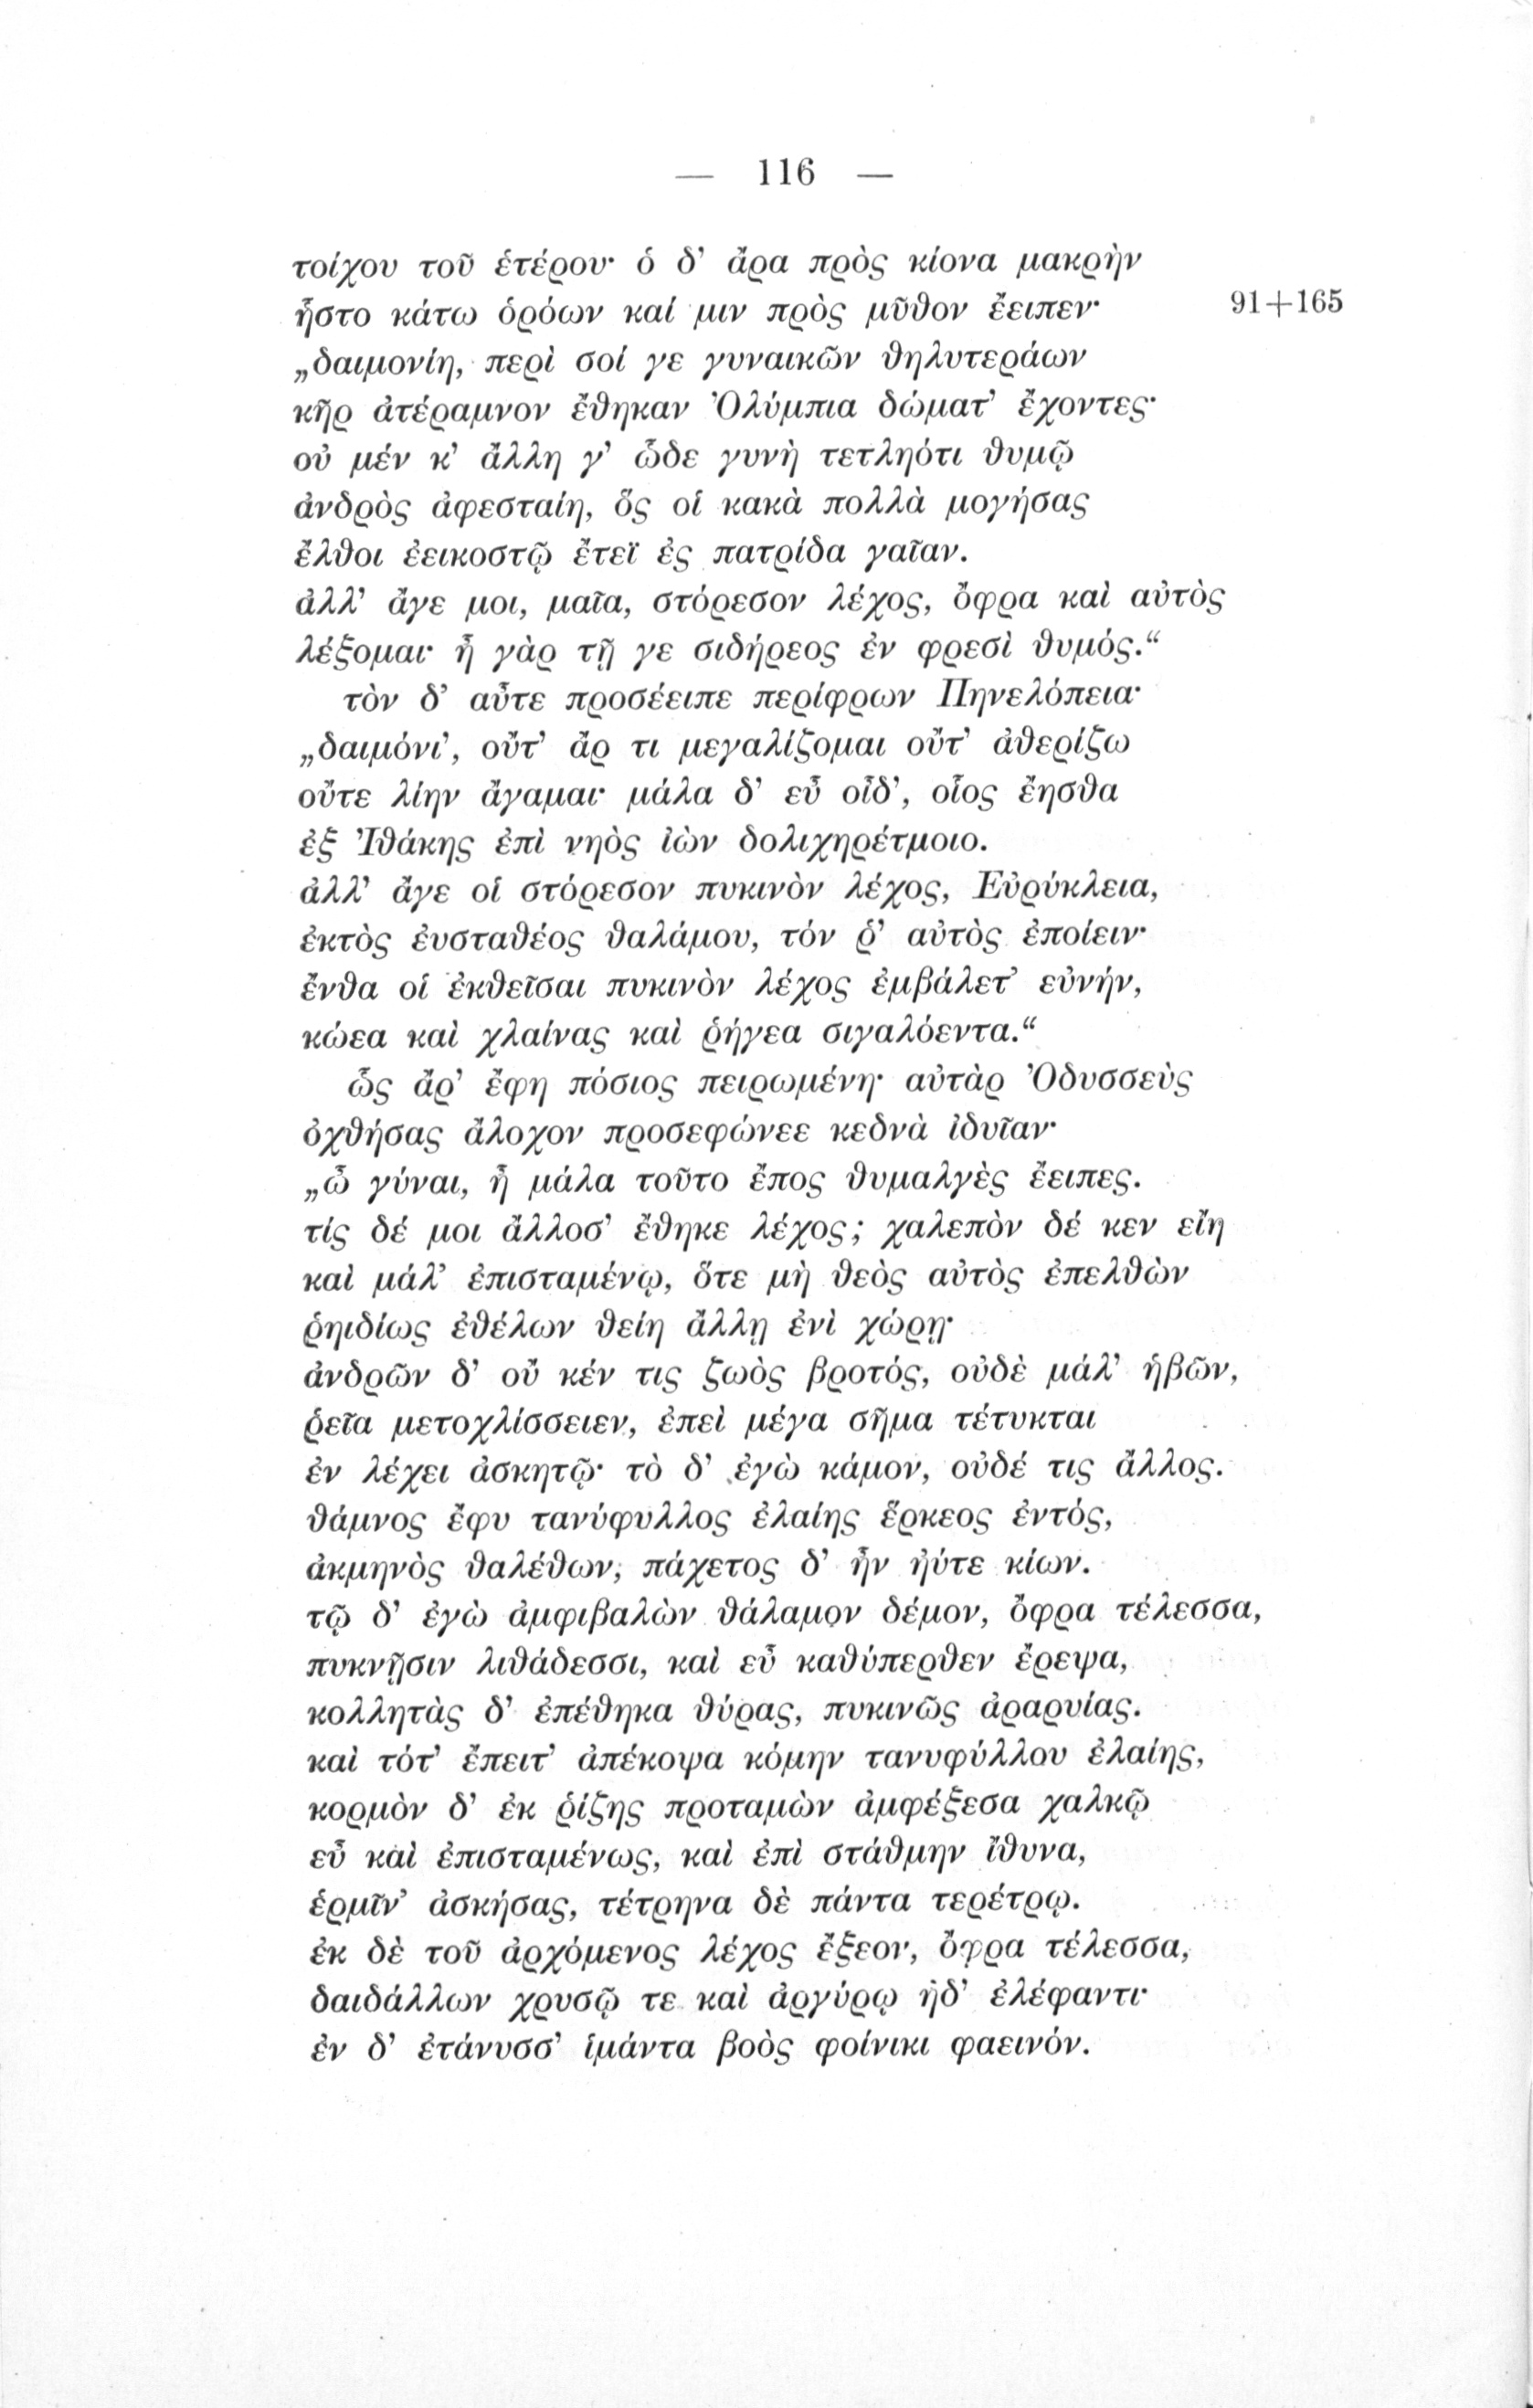 — 116 —
τοίχου τοῦ ἑτέρου· ὁ δ’ ἄρα πρὸς κίονα μακρὴν
ἧστο κάτω ὁρόων καί μιν πρὸς μῦθον ἔειπεν· 91+165
„δαιμονίη, περὶ σοί γε γυναικῶν θηλυτεράων
κῆρ ἀτέραμνον ἔθηκαν Ὀλύμπια δώματ’ ἔχοντες·
οὐ μέν κ’ ἄλλη γ’ ὧδε γυνὴ τετληότι θυμῷ
ἀνδρὸς ἀφεσταίη, ὅς οἱ κακὰ πολλὰ μογήσας
ἔλθοι ἐεικοστῷ ἔτεϊ ἐς πατρίδα γαῖαν.
ἀλλ’ ἄγε μοι, μαῖα, στόρεσον λέχος, ὄφρα καὶ αὐτὸς
λέξομαι· ἦ γὰρ τῇ γε σιδήρεος ἐν φρεσὶ θυμός.“
τὸν δ’ αὖτε προσέειπε περίφρων Πηνελόπεια·
„δαιμόνι’, οὔτ’ ἄρ τι μεγαλίζομαι οὔτ’ ἀθερίζω
οὔτε λίην ἄγαμαι· μάλα δ’ εὖ οἶδ’, οἷος ἔησθα
ἐξ Ἰθάκης ἐπὶ νηὸς ἰὼν δολιχηρέτμοιο.
ἀλλ’ ἄγε οἱ στόρεσον πυκινὸν λέχος, Εὐρύκλεια,
ἐκτὸς ἐυσταθέος θαλάμου, τόν ῥ’ αὐτὸς ἐποίειν·
ἔνθα οἱ ἐκθεῖσαι πυκινὸν λέχος ἐμβάλετ’ εὐνήν,
κώεα καὶ χλαίνας καὶ ῥήγεα σιγαλόεντα.“
ὣς ἄρ’ ἔφη πόσιος πειρωμένη· αὐτὰρ Ὀδυσσεὺς
ὀχθήσας ἄλοχον προσεφώνεε κεδνὰ ἰδυῖαν·
„ὦ γύναι, ἦ μάλα τοῦτο ἔπος θυμαλγὲς ἔειπες.
τίς δέ μοι ἄλλοσ’ ἔθηκε λέχος; χαλεπὸν δέ κεν εἴη
καὶ μάλ’ ἐπισταμένῳ, ὅτε μὴ θεὸς αὐτὸς ἐπελθὼν
ῥηιδίως ἐθέλων θείη ἄλλῃ ἐνὶ χώρῃ·
ἀνδρῶν δ’ οὔ κέν τις ζωὸς βροτός, οὐδὲ μάλ’ ἡβῶν,
ῥεῖα μετοχλίσσειεν, ἐπεὶ μέγα σῆμα τέτυκται
ἐν λέχει ἀσκητῷ· τὸ δ’ ἐγὼ κάμον, οὐδέ τις ἄλλος.
θάμνος ἔφυ τανύφυλλος ἐλαίης ἕρκεος ἐντός,
ἀκμηνὸς θαλέθων, πάχετος δ’ ἦν ἠύτε κίων.
τῷ δ’ ἐγὼ ἀμφιβαλὼν θάλαμον δέμον, ὄφρα τέλεσσα,
πυκνῇσιν λιθάδεσσι, καὶ εὖ καθύπερθεν ἔρεψα,
κολλητὰς δ’ ἐπέθηκα θύρας, πυκινῶς ἀραρυίας.
καὶ τότ’ ἔπειτ’ ἀπέκοψα κόμην τανυφύλλου ἐλαίης,
κορμὸν δ’ ἐκ ῥίζης προταμὼν ἀμφέξεσα χαλκῷ
εὖ καὶ ἐπισταμένως, καὶ ἐπὶ στάθμην ἴθυνα,
ἑρμῖν’ ἀσκήσας, τέτρηνα δὲ πάντα τερέτρῳ.
ἐκ δὲ τοῦ ἀρχόμενος λέχος ἔξεον, ὄφρα τέλεσσα,
δαιδάλλων χρυσῷ τε καὶ ἀργύρῳ ἠδ’ ἐλέφαντι·
ἐν δ’ ἐτάνυσσ’ ἱμάντα βοὸς φοίνικι φαεινόν.